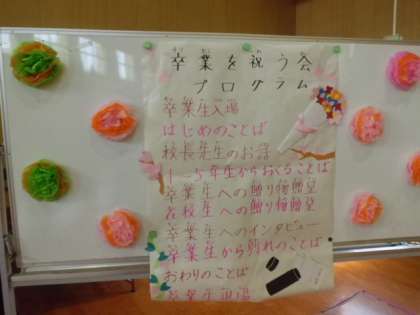 卒業を祝う会
プログラム
卒業生入場
はじめのことば
校長先生のお話
1~5年生からおくることば
卒業生への贈り物贈呈
在校生への贈り物贈呈
卒業生へのインタビュー
卒業生から別れのことば
おわりのことば
卒業生退場